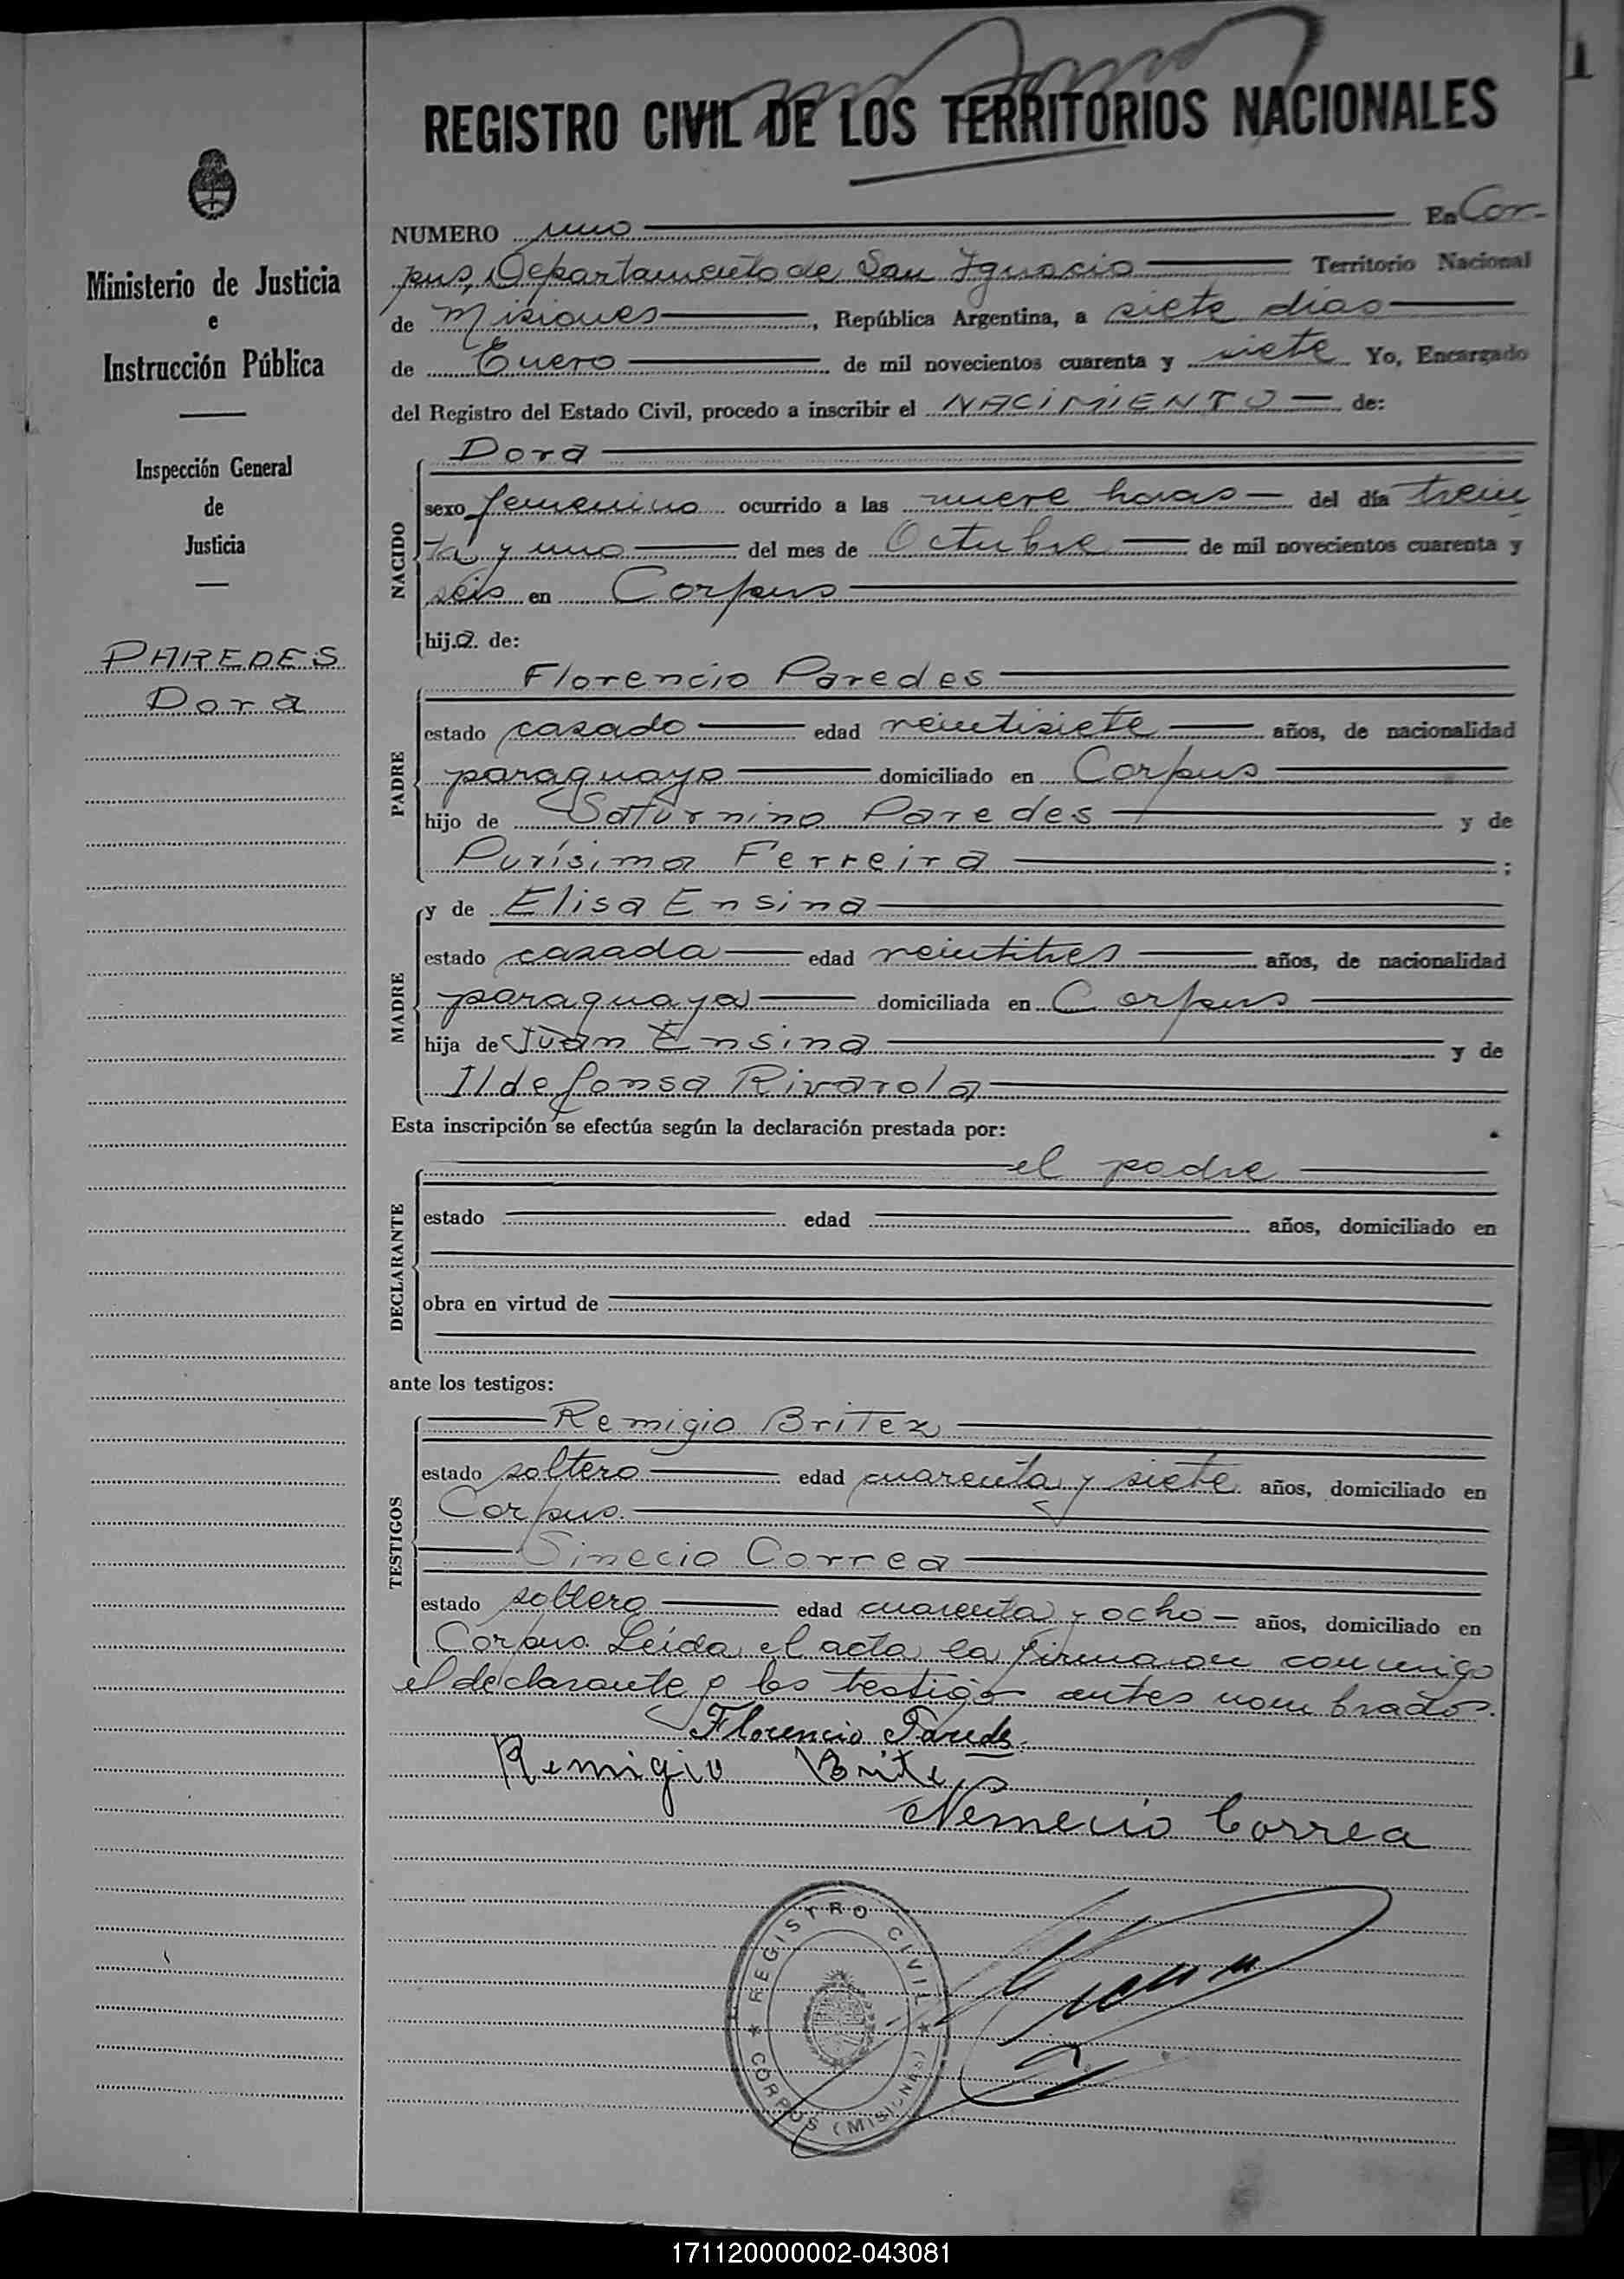 REGISTRO CIVIL DE LOS TERRITORIOS NACIONALES
1
Ministerio de Justicia
e
Instrucción Pública
Inspección General
de
Justicia
PAREDES
Dora
NUMERO uno En Cor-
pus, Departamento de San Ignacio Territorio Nacional
de Misiones, República Argentina, a siete dias
de Enero de mil novecientos cuarenta y siete Yo, Encargado
del Registro del Estado Civil, procedo a inscribir el NACIMIENTO de:
NACIDO
Dora
sexo femenino ocurrido a las nueve horas del día trein
ta y uno del mes de Octubre de mil novecientos cuarenta y
seis en Corpus
hija de:
PADRE
Florencio Paredes
estado casado edad veintisiete años, de nacionalidad
paraguayo domiciliado en Corpus
hijo de Saturnino Paredes y de
Purísima Ferreira ;
MADRE
y de Elisa Ensina
estado casada edad veintitres años, de nacionalidad
paraguaya domiciliada en Corpus
hija de Juan Ensina y de
Ildefonsa Rivarola
Esta inscripción se efectúa según la declaración prestada por:
DECLARANTE
el padre
estado edad años, domiciliado en
obra en virtud de
ante los testigos:
TESTIGOS
Remigio Britez
estado soltero edad cuarenta y siete años, domiciliado en
Corpus.
Sinecio Correa
estado soltero edad cuarenta y ocho años, domiciliado en
Corpus. Leída el acta la firmaron conmigo
el declarante e los testigos antes nombrados.
Florencio Paredes
Remigio Britez
Nemecio Correa
REGISTRO CIVIL
CORPUS (MISIONES)
171120000002-043081